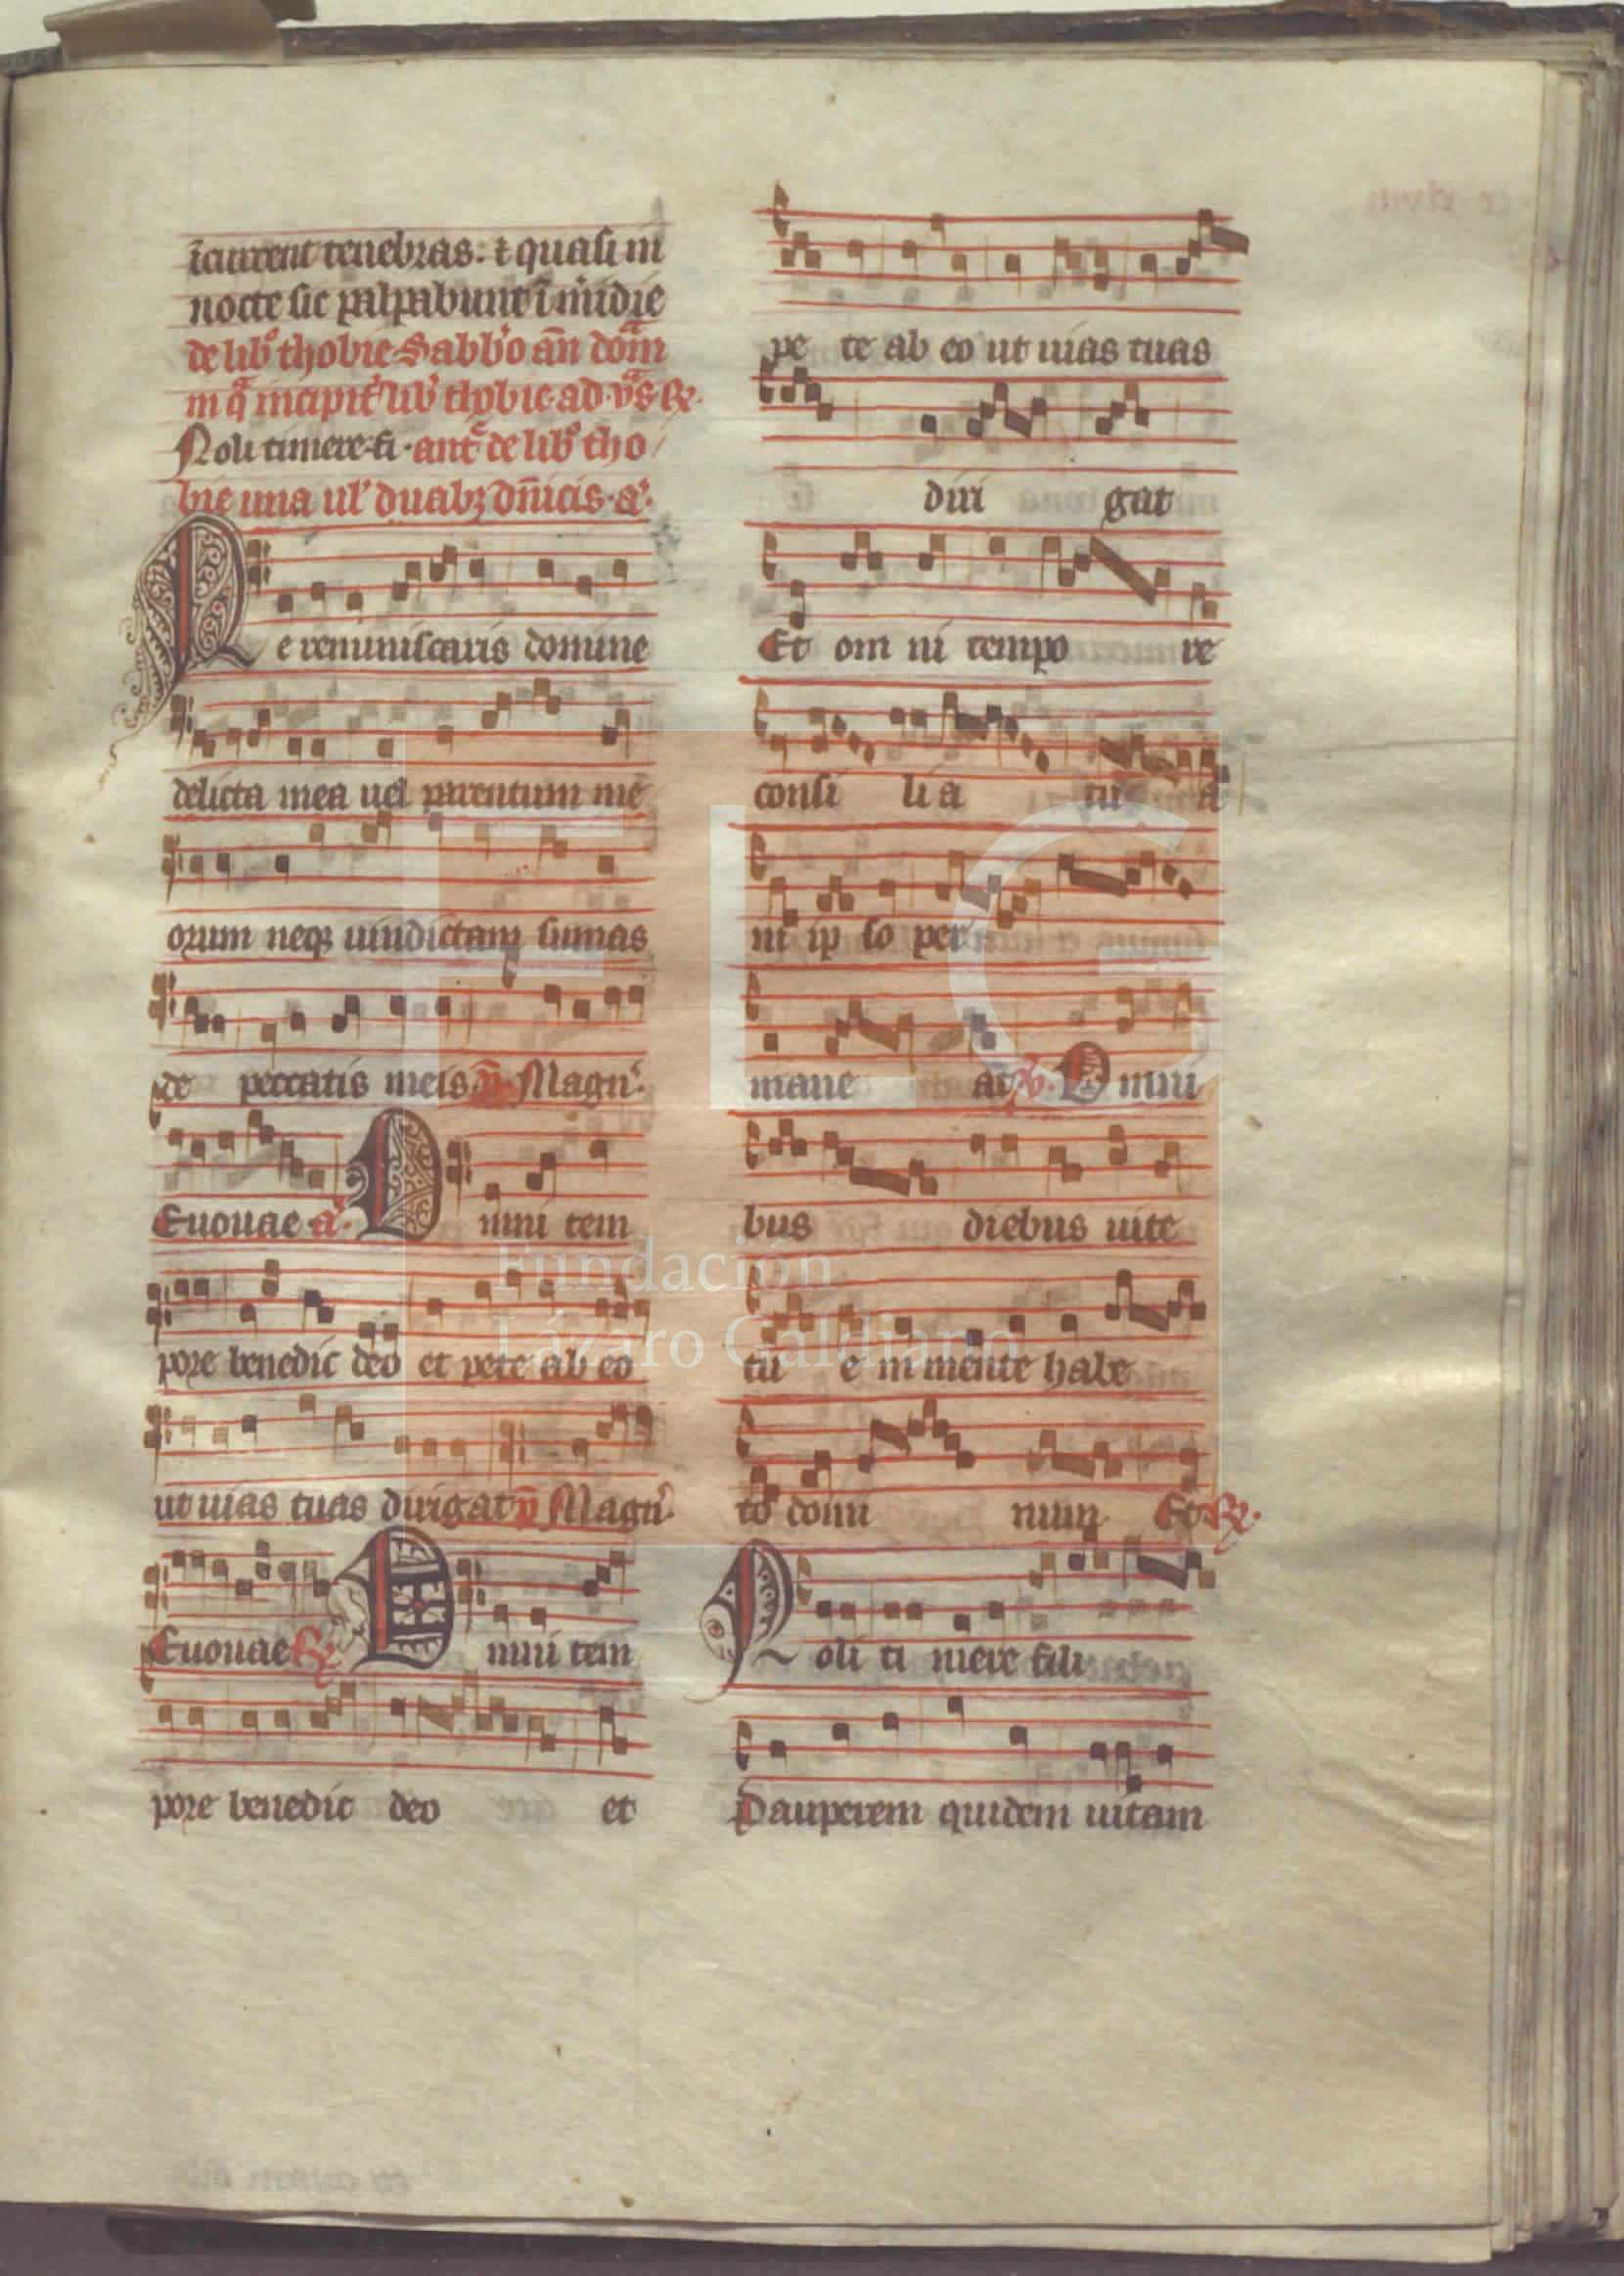 īcurrent tenebras: ⁊ quasi in
nocte sic palpabunt ī m̄idie
de libº thobie. Sabb'o an̄ dom̄
in q̄ incipit' lib' thobie. ad. v̄s. R͛.
Noli timere. fi. ant̄ de libº tho
bie una ul' duabꝫ dn̄icis. a'.
Ne reminiscaris domine
delicta mea uel parentum me
orum neqꝫ uindictam sumas
de peccatis meis. p̄. Magn'.
Euouae. a'. Omni tem
pore benedic deo et pete ab eo
ut uias tuas dirigat p̄ Magn'.
Euouae R͛. Omni tem
pore benedic deo et
pe te ab eo ut uias tuas
diri gat
Et om ni tempo re
consi li a tu a
in ip so per
mane ant V. Omni
bus diebus uite
tu e in mente habe
to domi num Et R͛.
Noli ti mere fili
Pauperem quidem uitam
Fundación
Lázaro Galdiano
FLG